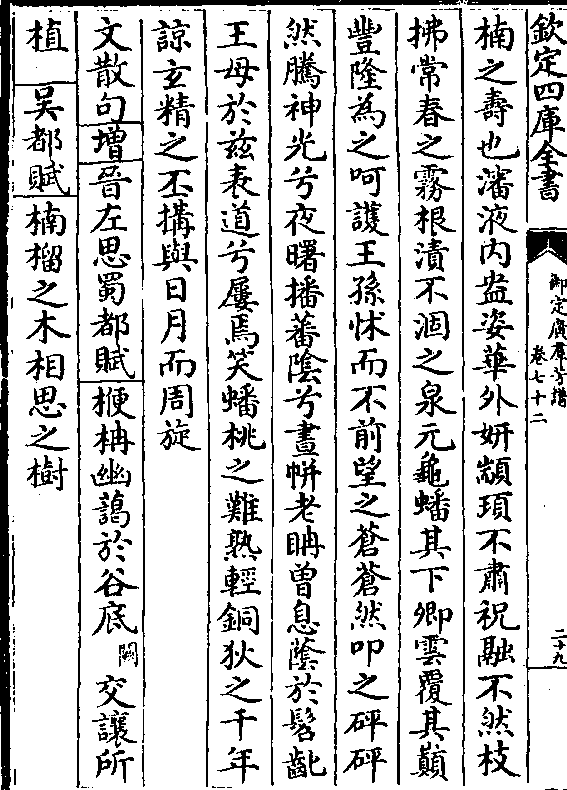 欽定四庫全書
御定廣羣芳譜
卷七十二
二十九
楠之壽也瀋液内盎姿華外妍顓頊不肅祝融不然枝
拂常春之霧根漬不涸之泉元龜蟠其下卿雲覆其顛
豐隆為之呵護王孫怵而不前望之蒼蒼然叩之砰砰
然騰神光兮夜曙播蕃陰兮晝帡老聃曾息蔭於髫齔
王母於兹表道兮屢焉笑蟠桃之難熟輕銅狄之千年
諒玄精之丕搆與日月而周旋
文散句增晉左思蜀都賦楩柟幽藹於谷底闕交讓所
植吳都賦楠榴之木相思之樹